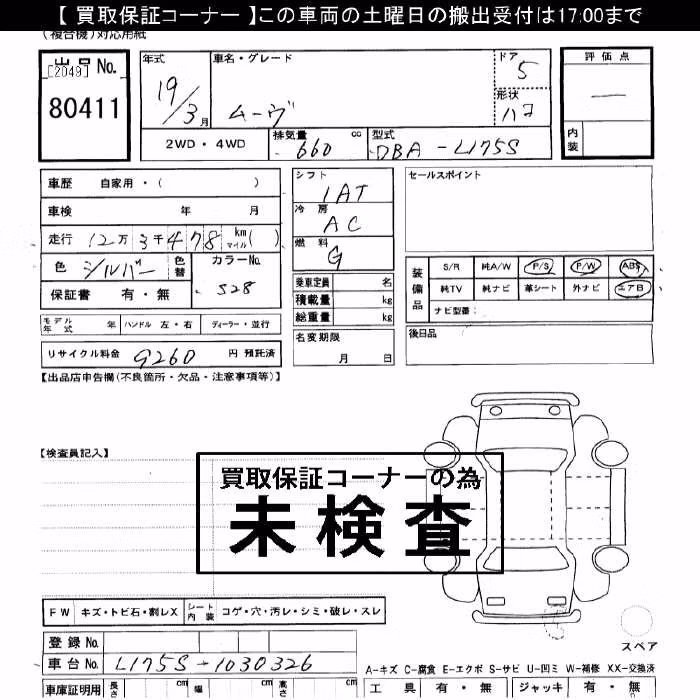 【 買取保証コーナー 】この車両の土曜日の搬出受付は17:00まで
(複合機)対応用紙
出品No. [2049] 80411
年式 19/3月
車名・グレード ムーヴ
ドア 5
形状 ハコ
評価点 —
内装
2WD・4WD
排気量 660 cc
型式 DBA-L175S
車歴 自家用・( )
車検 年 月
走行 12万3千478 km マイル( )
色 シルバー 色替
カラーNo. S28
保証書 有・無
シフト IAT
冷房 AC
燃料 G
乗車定員 名
積載量 kg
総重量 kg
名変期限 月 日
セールスポイント
装備品 S/R 純A/W P/S P/W ABS
純TV 純ナビ 革シート 外ナビ エアB
ナビ型番:
後日品
モデル年式 年 ハンドル 左・右 ディーラー・並行
リサイクル料金 9260 円 預託済
【出品店申告欄(不良箇所・欠品・注意事項等)】
【検査員記入】
買取保証コーナーの為
未検査
FW キズ・トビ石・割レX シート内装 コゲ・穴・汚レ・シミ・破レ・スレ
登録No.
車台No. L175S-1030326
スペア
A-キズ C-腐食 E-エクボ S-サビ U-凹ミ W-補修 XX-交換済
車庫証明用 長さ cm 幅 cm 高さ cm
工具 有・無 ジャッキ 有・無